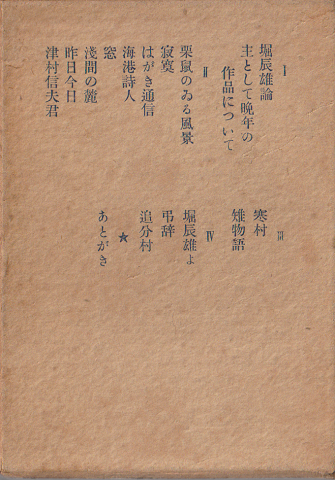 I
堀辰雄論
主として晩年の
作品について
II
栗鼠のゐる風景
寂寞
はがき通信
海港詩人
窓
浅間の麓
昨日今日
津村信夫君
III
寒村
雉物語
IV
堀辰雄よ
弔辞
追分村
★
あとがき